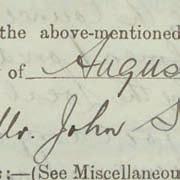 the above-mentioned
of Augus
Mr. John S
:—(See Miscellaneou